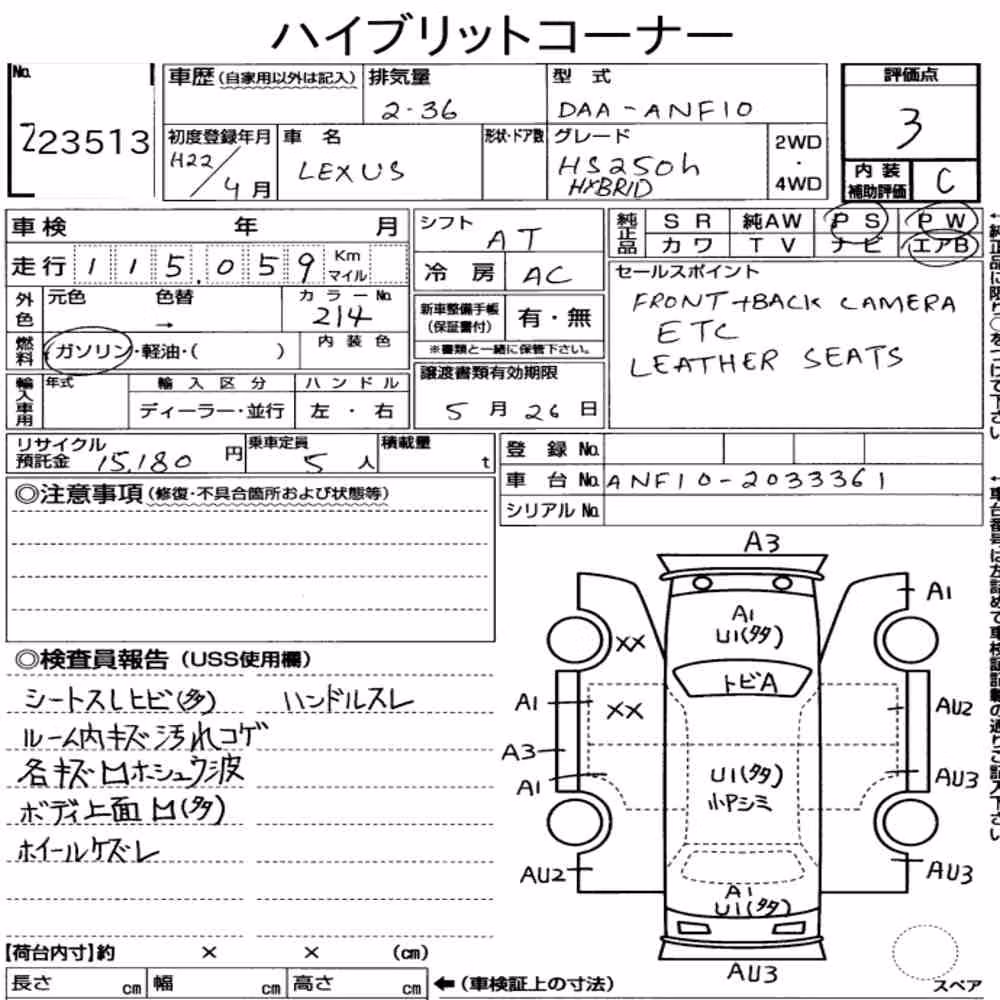 ハイブリットコーナー
No.
223513
車歴 (自家用以外は記入)
排気量
2-36
型 式
DAA-ANF10
評価点
3
初度登録年月
H22/4月
車 名
LEXUS
形状・ドア数
グレード
HS250h
HYBRID
2WD
・
4WD
内 装
補助評価
C
車検 年 月
走行 115,059 Km マイル
外色
元色 色替
→
カラーNo.
214
燃料
ガソリン・軽油・( )
内 装 色
輸入車用
年式
輸 入 区 分
ディーラー・並行
ハ ン ド ル
左 ・ 右
シフト
AT
冷 房
AC
新車整備手帳
(保証書付)
有・無
※書類と一緒に保管下さい。
譲渡書類有効期限
5月26日
純正品
SR 純AW PS PW
カワ TV ナビ エアB
セールスポイント
FRONT+BACK CAMERA
ETC
LEATHER SEATS
←純正品に限り○をつけて下さい
リサイクル
預託金 15,180 円
乗車定員
5人
積載量
t
登 録 No.
車 台 No. ANF10-2033361
シリアル No.
←車台番号は左詰めて車検証記載の通りご記入下さい
◎注意事項 (修復・不具合箇所および状態等)
◎検査員報告 (USS使用欄)
シートスレヒビ(多) ハンドルスレ
ルーム内キズ汚れコゲ
各キズ凹ホシュウ波
ボディ上面凹(多)
ホイールケズレ
A3
A1
U1(多)
A1
XX
トビA
A1
XX
AU2
A3
A1
U1(多)
小Pシミ
AU3
AU2
A1
U1(多)
AU3
AU3
スペア
【荷台内寸】約 × × (cm)
長さ cm 幅 cm 高さ cm ←(車検証上の寸法)